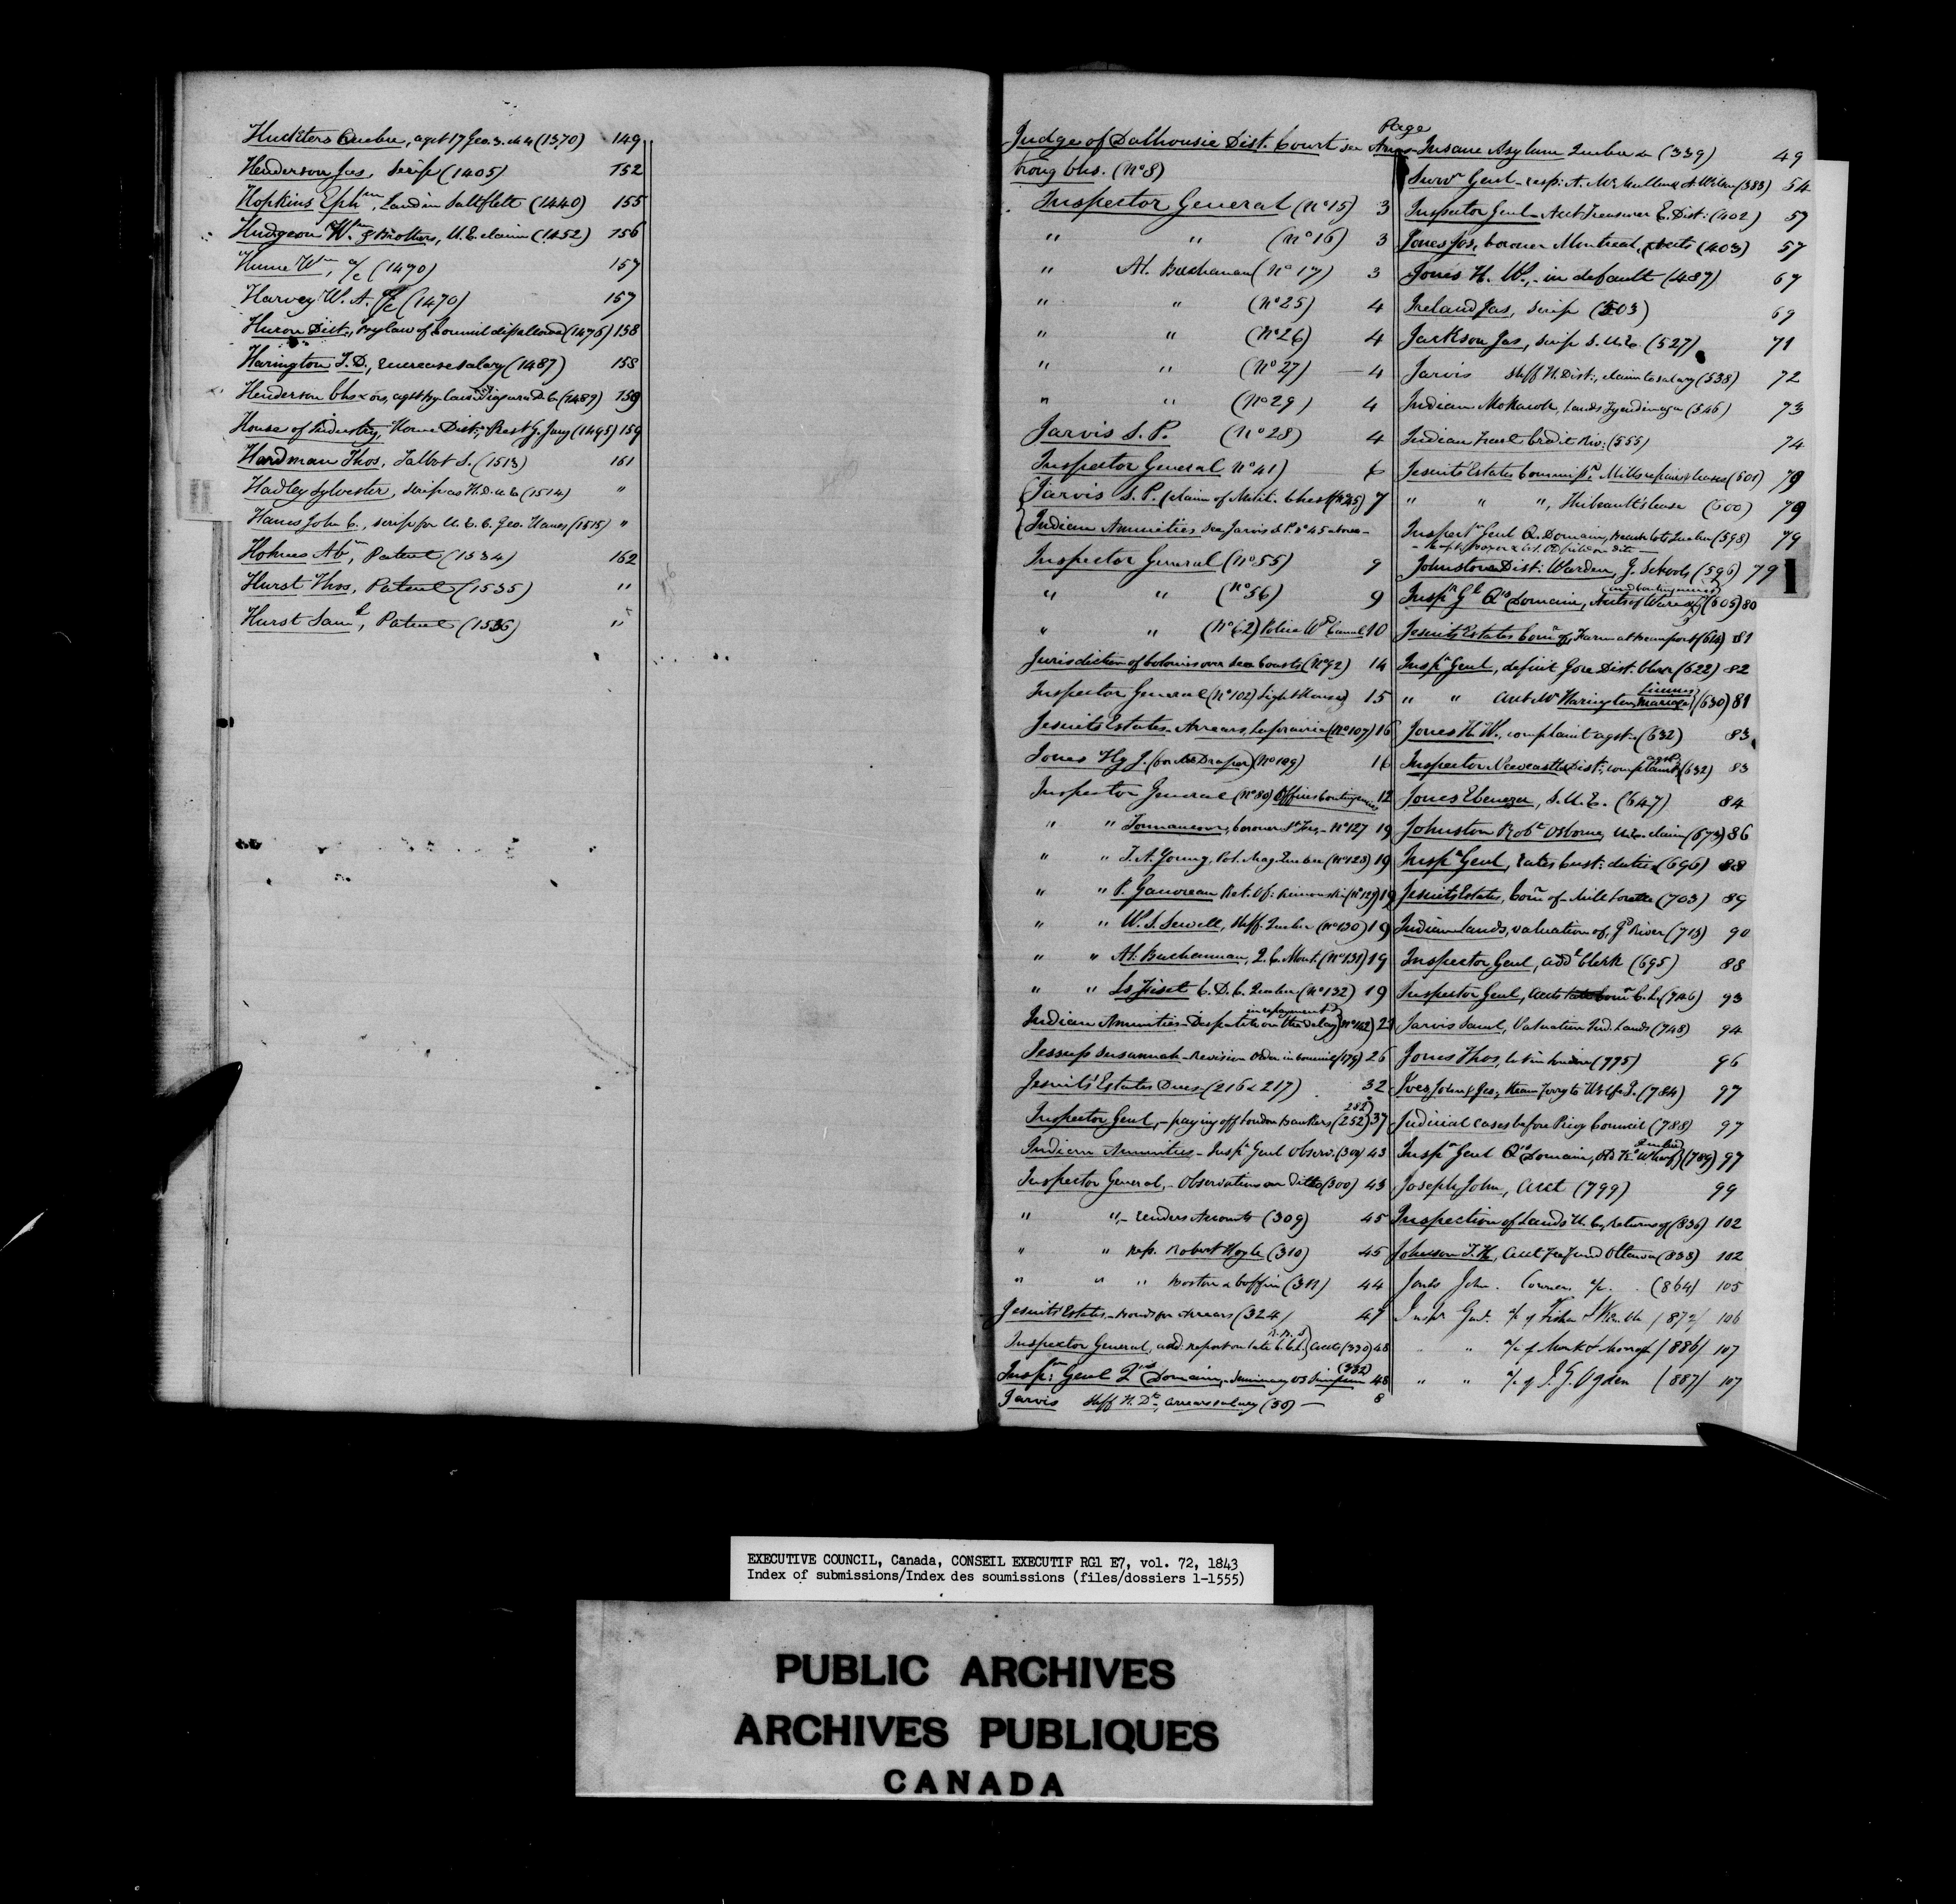 Hucksters Quebec, agst 17 Geo. 3. ch 4 (1370) 149
Henderson Jas, Scrip (1405) 152
Hopkins Ephm, Land in Saltfleet (1440) 155
Hudgeon Wm & Brothers, U.E. claim (1452) 156
Hume Wm, a/c (1470) 157
Harvey W. A. a/c (1470) 157
Huron Dist., by law of Council disallowed (1476) 158
Harington T. D., increase salary (1487) 158
Henderson Chs & ors, agst by law Niagara D. C. (1489) 159
House of Industry, Home Dist., Prest G. Jury (1495) 159
Hardman Thos, Talbot S. (1513) 161
Hadley Sylvester, scrip as H.D. U.E. (1514) "
Hanes John C., scrip for U. E. C. Geo. Hanes (1515) "
Holmes Abm, Patent (1534) 162
Hurst Thos, Patent (1535) "
Hurst Saml, Patent (1536) "
Page
Judge of Dalhousie Dist. Court see Arms-
trong Chs. (No 8)
Inspector General (No 15) 3
" " (No 16) 3
" At. Buchanan (No 17) 3
" " (No 25) 4
" " (No 26) 4
" " (No 27) — 4
" " (No 29) 4
Jarvis S. P. (No 28) 4
Inspector General No 41) 6
Jarvis S. P. (claim of Medl. Chest (No 45) 7
Indian Annuities see Jarvis S. P. No 45 above -
Inspector General (No 55) 9
" " (No 56) 9
" " (No 62) Police Wd Canal 10
Jurisdiction of Colonies over Sea Coasts (No 92) 14
Inspector General (No 102) Light Houses 15
Jesuits Estates - Arrears, Laprairie (No 107) 16
Jones Hy J. (or Draper) (No 109) 16
Inspector General (No 80) Offices Contingencies 12
" " Tonnancour, coroner 3 Frs - No 127 19
" " T. A. Young, Pol. Mag. Quebec (No 128) 19
" " P. Gauvreau Ret. Of: Rimouski (No 129) 19
" " W. S. Sewell, Sheff. Quebec (No 130) 19
" " At. Buchannan, Q. C. Mont. (No 131) 19
" " Ls Fiset C. D. C. Quebec (No 132) 19
in repayment
Indian Annuities - Despatch on the delay (No 142) 21
Jessup Susannah - Revision Order in Council (179) 26
Jesuits' Estates Dues - (216 & 217) 32
282
Inspector Genl, - paying off London Bankers (252) 37
Indian Annuities - Inspr Genl Observ. (300) 43
Inspector General, - Observations on Ditto (300) 43
" ", - renders Accounts (309) 45
" " resp. Robert Hoyle (310) 45
" " " Boston & Coffin (311) 44
Jesuits Estates - Bonds for Arrears (324) 47
Inspector General, add. report on late C. C. L. Accts (330) 48
(332)
Inspr Genl Qns Domain, - Seminary vs Simpson 48
Jarvis Sheff H. Dt, arrears salary (50) — 8
Insane Asylum Quebec (339) 49
Survr Genl - resp: A. McMullen & A. Wilson (383) 54
Inspector Genl - Acct Treasurer E. Dist: (402) 57
Jones Jos, Coroner Montreal, accts (403) 57
Jones H. W., - in default (487) 67
Ireland Jas, Scrip (503) 69
Jackson Jas, scrip S. U. E. (527) 71
Jarvis Sheff H. Dist:, claim to salary (538) 72
Indian Mohawk, Lands Tyendinaga (546) 73
Indian Tract Credit Riv: (555) 74
Jesuits' Estates Commissr: Mills repairs & leases (601) 79
" " ", Thibeault's lease (600) 79
Inspectr Genl Q. Domain, Beach lots Quebec (598) 79
Johnstown Dist: Warden, G. Schools, (596) 79
(and Contingencies)
Inspr Gl Qns Domain, Accts of (605) 80
Jesuits Estates Comr of, Farm at Beauport (614) 81
Inspr Genl, deficit Gore Dist. Clerk (622) 82
Licenses
" " Acct Mr Harington, Marriage (630) 81
Jones H. W., complaint agst - (632) 83
agst
Inspector Newcastle Dist:, complaint (632) 83
Jones Ebenezer, S. U. E. (647) 84
Johnston Robt Osborne, U.E. claim (673) 86
Inspr Genl, rates Cust: duties (696) 88
Jesuits Estates, Comr of - Mill Lorette (703) 89
Indian Lands, valuation of, Gd River (715) 90
Inspector Genl, addl Clerk (695) 88
Inspector Genl, accts late Comr C. L. (746) 93
Jarvis Saml, Valuation Ind. Lands (748) 94
Jones Thos, lot in London (775) 96
Ives John & Jos:, steam Ferry to Wolfe I. (784) 97
Judicial cases before Privy Council (788) 97
Quebec
Inspr Genl Qns Domain, Old Ks Wharf (789) 97
Joseph John, Acct (799) 99
Inspection of Lands U. C., Returns of (836) 102
Johnson J. H., Acct Ottawa (838) 102
Jones John. Coroner a/c. (864) 105
Inspr Genl. a/c of Fisher & (872) 106
" " a/c of Monk & Morrogh (886) 107
" " a/c of I. G. Ogden (887) 107
I
EXECUTIVE COUNCIL, Canada, CONSEIL EXECUTIF RG1 E7, vol. 72, 1843
Index of submissions/Index des soumissions (files/dossiers 1-1555)
PUBLIC ARCHIVES
ARCHIVES PUBLIQUES
CANADA